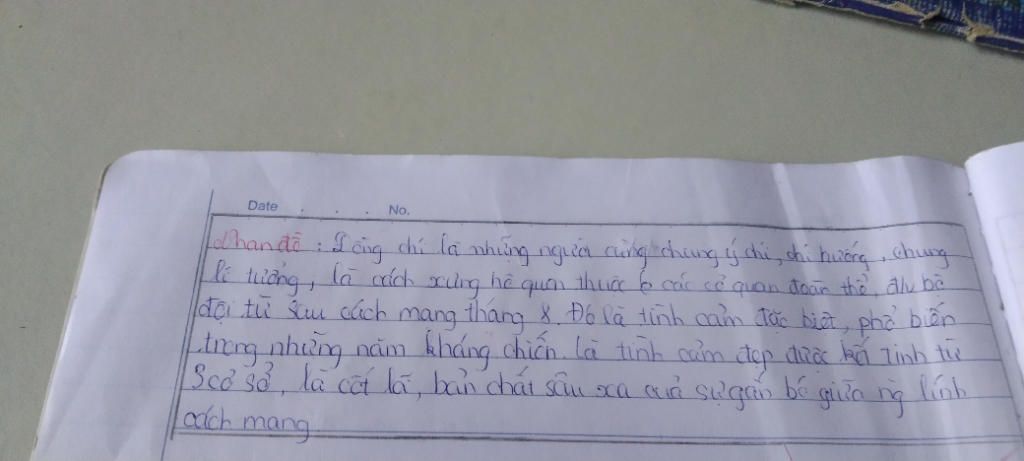 Date . . . No.
Nhan đề : Đồng chí là những người cùng chung ý chí, chí hướng, chung
lí tưởng, là cách xưng hô quen thuộc ở các cơ quan đoàn thể, đv bộ
đội từ sau cách mang tháng 8. Đó là tình cảm đặc biệt, phổ biến
trong những năm kháng chiến. là tình cảm đẹp được kết tinh từ
3 cơ sở, là cốt lõi, bản chất sâu xa của sự gắn bó giữa ng lính
cách mang